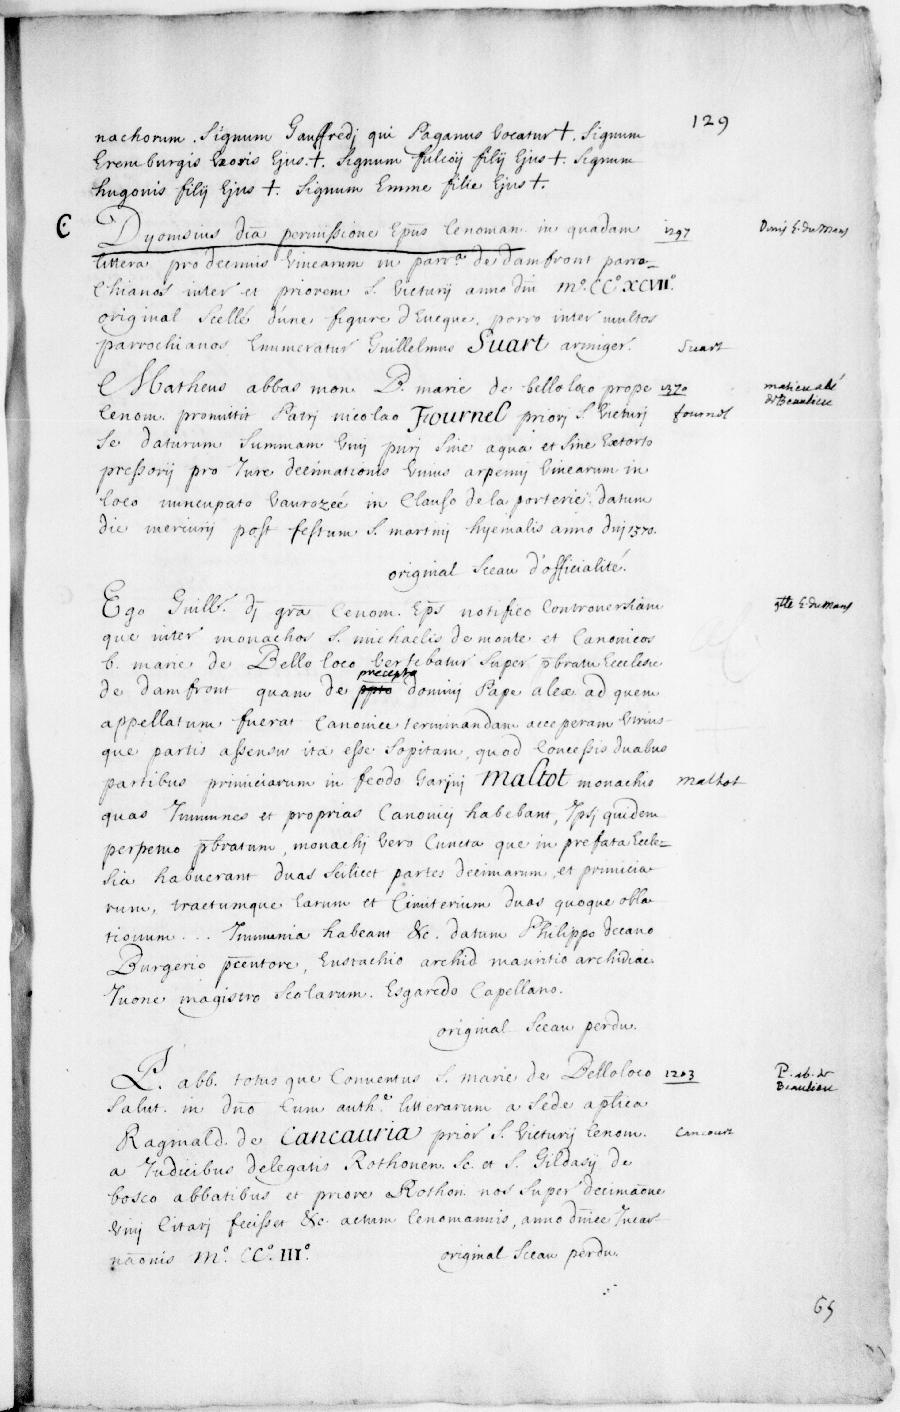 129
nachorum. Signum Gauffredj qui Paganus Vocatur †. Signum
Eremburgis Uxoris Ejus. †. Signum fulcoij filij Ejus †. Signum
hugonis filij Ejus †. Signum Emme filie Ejus †.
C Dyonisius dīa permissione Ep̄us Cenoman. in quadam 1297 Denis E. du Mans
littera pro decimis Vinearum in parr.ª de damfront parro-
chianos inter et priorem S. Victurij anno dñi M.º CCº XCVIIº.
original Scellé d'une figure d'Eueque. porro inter multos
parrochianos Enumeratur Guillelmus Suart armiger. Suart
Matheus abbas mon. B. marie de bello loco prope 1370 matieu abé
de Beaulieu
Cenom. promittit Patrj nicolao Fournel priorj S. Victurij fournel
Se daturum Summam Vinj purj Sine aqua et Sine Extorto
pressorij pro Jure decimationis Unius arpennj Vinearum in
loco nuncupato Vaurozeé in Clauso de la porterie. datum
die mercurij post festum S. martinj hyemalis anno dnj 1370.
original Sceau d'officialité.
Ego Guill. dj gr̄a Cenom. Ep̄s notifico Controversiam glle E. du Mans
que inter monachos S. michaelis de monte et Canonicos
b. marie de Bello loco Vertebatur Super p̄bratu Ecclesie
precepto
de damfront quam de ppto dominj Pape alex ad quem
appellatum fuerat Canonice terminandam acceperam Utrius-
que partis assensu ita esse Sopitam, quod Concessis duabus
partibus primiciarum in feodo Garjnj Maltot monachis maltot
quas Immunes et proprias Canonicj habebant, Ipsj quidem
perpetuo p̄bratum, monachj vero Cuncta que in prefata Eccle-
sia habuerant duas Scilicet partes decimarum, et primicia
rum, tractumque Earum et Cimiterium duas quoque obla
tionum... Immunia habeant &c. datum Philippo decano
Burgerio p̄centore, Eustachio archid mauritio archidiac
Juone magistro Scolarum. Esgaredo Capellano.
original Sceau perdu.
P. abb. totus que Conventus S. marie de Belloloco 1203 P. ab. de
Beaulieu
Salut. in dn̄o Cum auth.e litterarum a Sede aplica
Raginald. de Cancauria prior S. Victurij Cenom. Cancourt
a Judicibus delegatis Rothonen. Sc. et S. Gildasij de
bosco abbatibus et priore Rothon. nos Super decimac̄one
Vinj Citarj fecisset &c. actum Cenomannis, anno dn̄ice Incar
nac̄onis Mº. CCº. IIIº. original Sceau perdu.
65